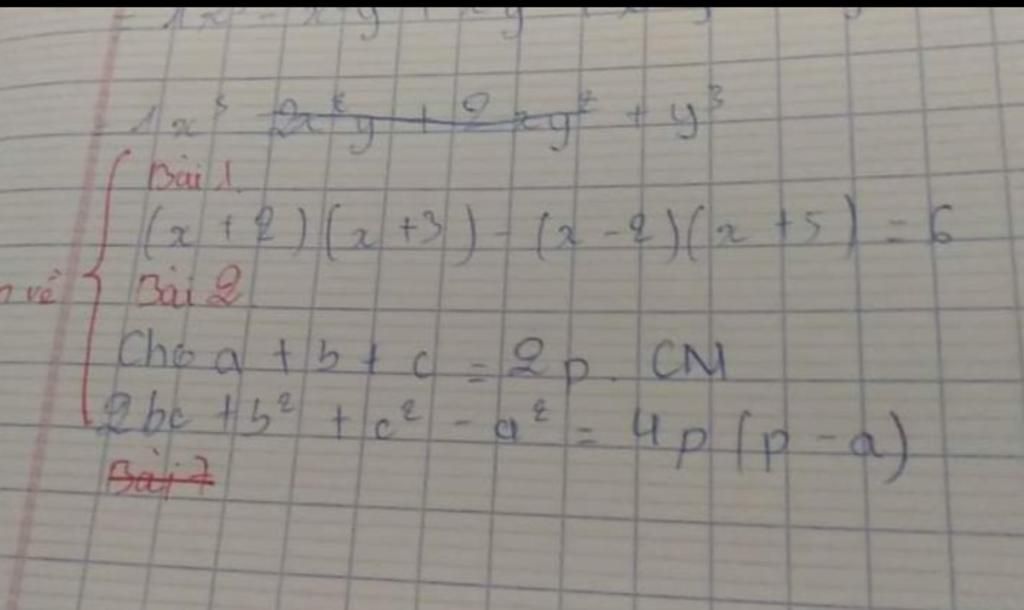 1x³ 2x²y + 2xy² + y³
Bài 1.
(x + 2)(x + 3) - (x - 2)(x + 5) = 6
vẽ
Bài 2
Cho a + b + c = 2p. CM
2bc + b² + c² - a² = 4p (p - a)
Bài 7